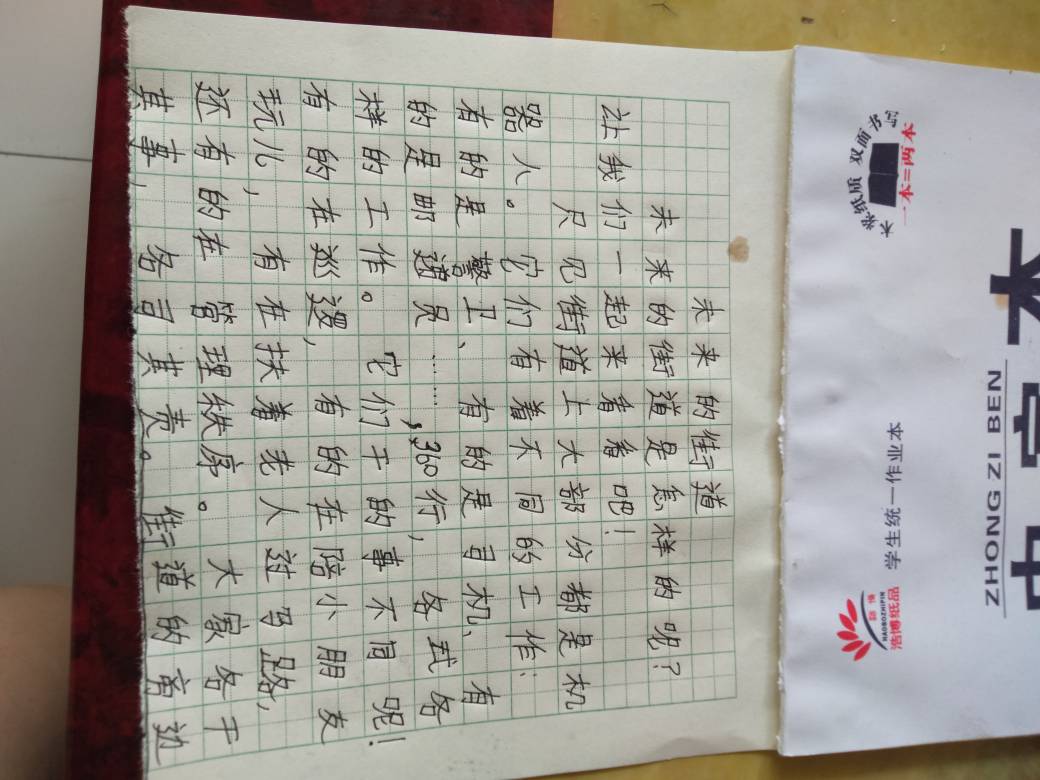 未来的街道
未来的街道是怎样的呢?
让我们一起来看看吧!
只见街道上大部份都是机
器人。它们有着不同的工作:
有的是警卫、有的是司机、有
的是邮递员……,360行,各式各
样的工作。它们干的事不同呢!
有的在巡逻,有的在陪小朋友
玩儿,有在扶着老人过马路,
还有的在管理秩序。大家各干
其事,各司其责。街道的旁边
木浆纸质 双面书写
一本=两本
浩博
HAOBOZHIPIN
浩博纸品
学生统一作业本
ZHONG ZI BEN
中字本